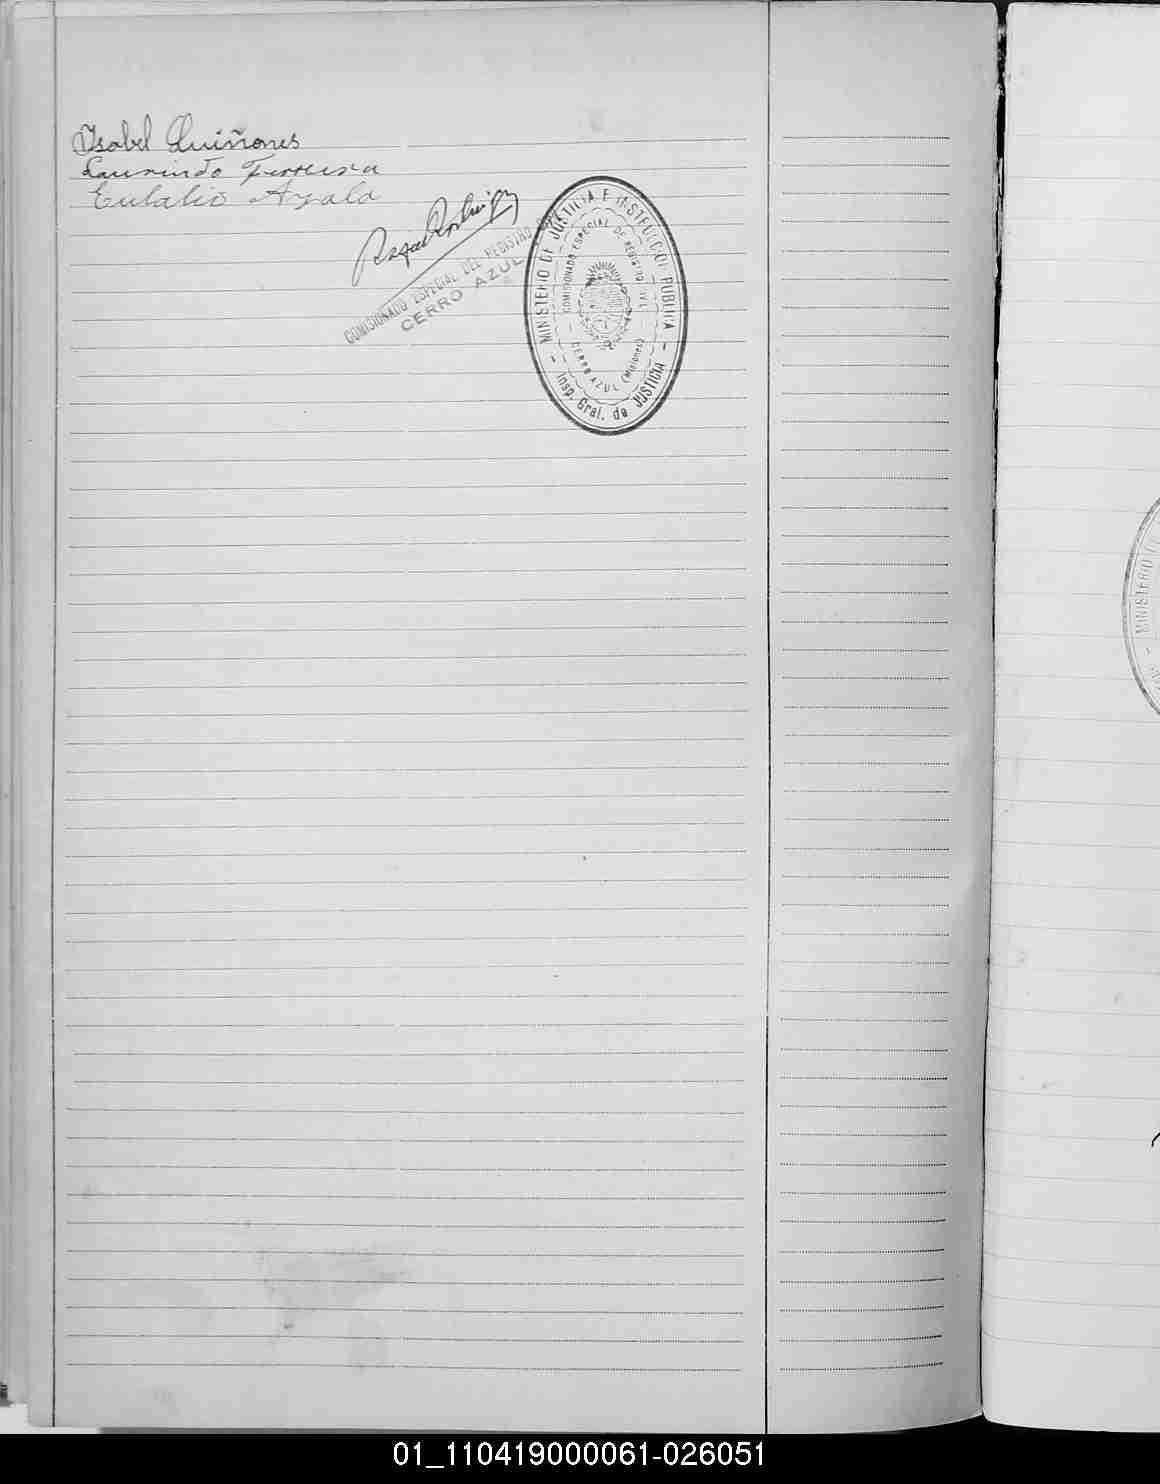 Isabel Quiñones
Laurindo Ferreira
Eulalio Ayala
COMISIONADO ESPECIAL DEL REGISTRO
CERRO AZUL
MINISTERIO DE JUSTICIA E INSTRUCCION PUBLICA
COMISIONADO ESPECIAL DE REGISTRO CIVIL
CERRO AZUL (Misiones)
Insp. Gral. de JUSTICIA
MINISTERIO
01_110419000061-026051